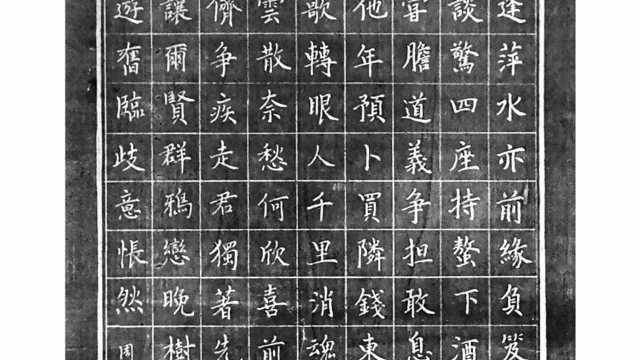 逢萍水亦前緣負笈
談驚四座持螯下酒
膽道義爭担敢息
他年預卜買隣錢東
歌轉眼人千里消魂
雲散奈愁何欣喜前
儕爭疾走君獨著先
讓爾賢群鴉戀晚樹
遊舊臨歧意悵然周